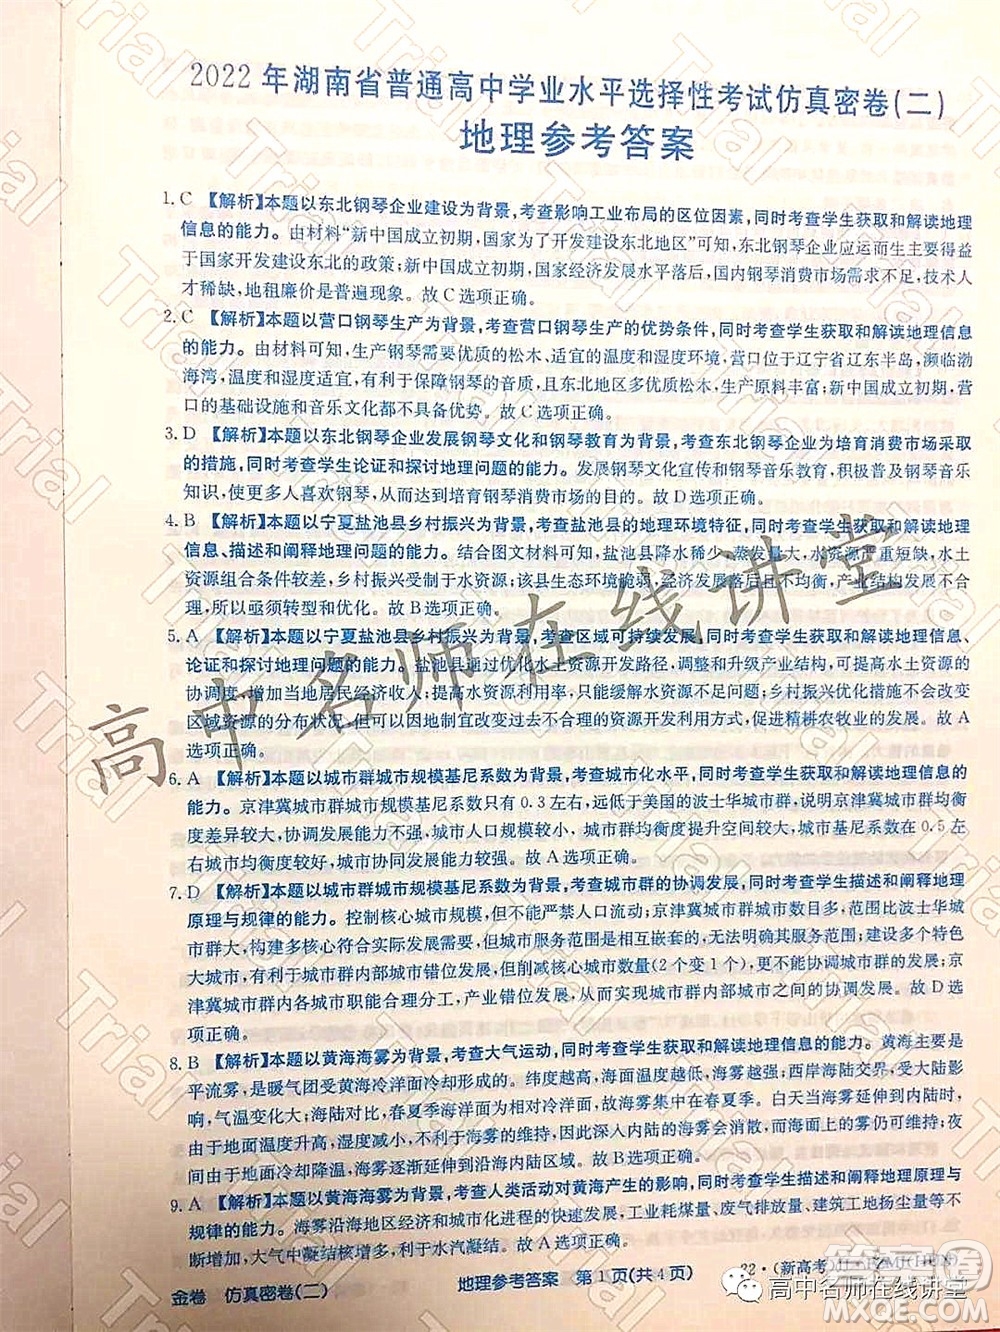 2022年湖南省普通高中学业水平选择性考试仿真密卷(二)
地理参考答案
1. C 【解析】本题以东北钢琴企业建设为背景,考查影响工业布局的区位因素,同时考查学生获取和解读地理
信息的能力。由材料“新中国成立初期,国家为了开发建设东北地区”可知,东北钢琴企业应运而生主要得益
于国家开发建设东北的政策;新中国成立初期,国家经济发展水平落后,国内钢琴消费市场需求不足,技术人
才稀缺,地租廉价是普遍现象。故C选项正确。
2. C 【解析】本题以营口钢琴生产为背景,考查营口钢琴生产的优势条件,同时考查学生获取和解读地理信息
的能力。由材料可知,生产钢琴需要优质的松木、适宜的温度和湿度环境,营口位于辽宁省辽东半岛,濒临渤
海湾,温度和湿度适宜,有利于保障钢琴的音质,且东北地区多优质松木,生产原料丰富;新中国成立初期,营
口的基础设施和音乐文化都不具备优势。故C选项正确。
3. D 【解析】本题以东北钢琴企业发展钢琴文化和钢琴教育为背景,考查东北钢琴企业为培育消费市场采取
的措施,同时考查学生论证和探讨地理问题的能力。发展钢琴文化宣传和钢琴音乐教育,积极普及钢琴音乐
知识,使更多人喜欢钢琴,从而达到培育钢琴消费市场的目的。故D选项正确。
4. B 【解析】本题以宁夏盐池县乡村振兴为背景,考查盐池县的地理环境特征,同时考查学生获取和解读地理
信息、描述和阐释地理问题的能力。结合图文材料可知,盐池县降水稀少,蒸发量大,水资源严重短缺,水土
资源组合条件较差,乡村振兴受制于水资源;该县生态环境脆弱,经济发展不平衡与不均衡,产业结构不合
理,所以亟须转型和优化。故B选项正确。
5. A 【解析】本题以宁夏盐池县乡村振兴为背景,考查区域可持续发展,同时考查学生获取和解读地理信息、
论证和探讨地理问题的能力。盐池县通过优化水土资源开发路径,调整和升级产业结构,可提高水土资源的
协调度,增加当地居民经济收入;提高水资源利用率,只能缓解水资源不足问题;乡村振兴实施不会改变
区域资源的分布状况,但可以因地制宜改变过去不合理的资源开发利用方式,促进精耕农牧业的发展。故A
选项正确。
6. A 【解析】本题以城市群城市规模基尼系数为背景,考查城市化水平,同时考查学生获取和解读地理信息的
能力。京津冀城市群城市规模基尼系数只有0.3左右,远低于美国的波士华城市群,说明京津冀城市群均衡
度差异较大,协调发展能力不强,城市人口规模较小,城市群均衡度提升空间较大,城市基尼系数在0.5左
右城市均衡度较好,城市协同发展能力较强。故A选项正确。
7. D 【解析】本题以城市群城市规模基尼系数为背景,考查城市群的协调发展,同时考查学生描述和阐释地理
原理与规律的能力。控制核心城市规模,但不能严禁人口流动;京津冀城市群城市数目多,范围比波士华城
市群大,构建多核心符合实际发展需要,但城市服务范围是相互嵌套的,无法明确界定范围;建设多个特色
大城市,有利于城市群内部城市错位发展,但削减核心城市数量(2个变1个),更不利于城市群的发展;京
津冀城市群内各城市职能合理分工,产业错位发展,从而实现城市群内部城市之间的协调发展。故D选
项正确。
8. B 【解析】本题以黄海海雾为背景,考查大气运动,同时考查学生获取和解读地理信息的能力。黄海主要是
平流雾,是暖气团受到黄海冷洋面冷却形成的。纬度越高,海陆温差越大,海雾越强;西岸海陆交界,受大陆影
响,气温变化大;海陆对比,春夏季黄海形成相对冷洋面,故海雾集中在春夏季。当海雾延伸到内陆时,
由于地面温度升高,不利于海雾的维持,因此深入内陆的海雾会消散,而海上的雾仍可维持;夜
晚由于地面冷却降温,海雾逐渐延伸到沿海内陆。故B选项正确。
9. A 【解析】本题以黄海海雾为背景,考查人类活动对黄海产生的影响,同时考查学生描述和阐释地理原理与
规律的能力。海雾沿海地区经济和城市化进程的快速发展,工业耗煤量、废气排放量、建筑工地扬尘量等大
不断增加,大气中凝结核增多,利于水汽凝结。故A选项正确。
金卷 仿真密卷(二)
地理参考答案 第1页(共4页)
高中名师在线讲堂
高中名师在线讲堂
答案圈
MXQE.COM
Trial